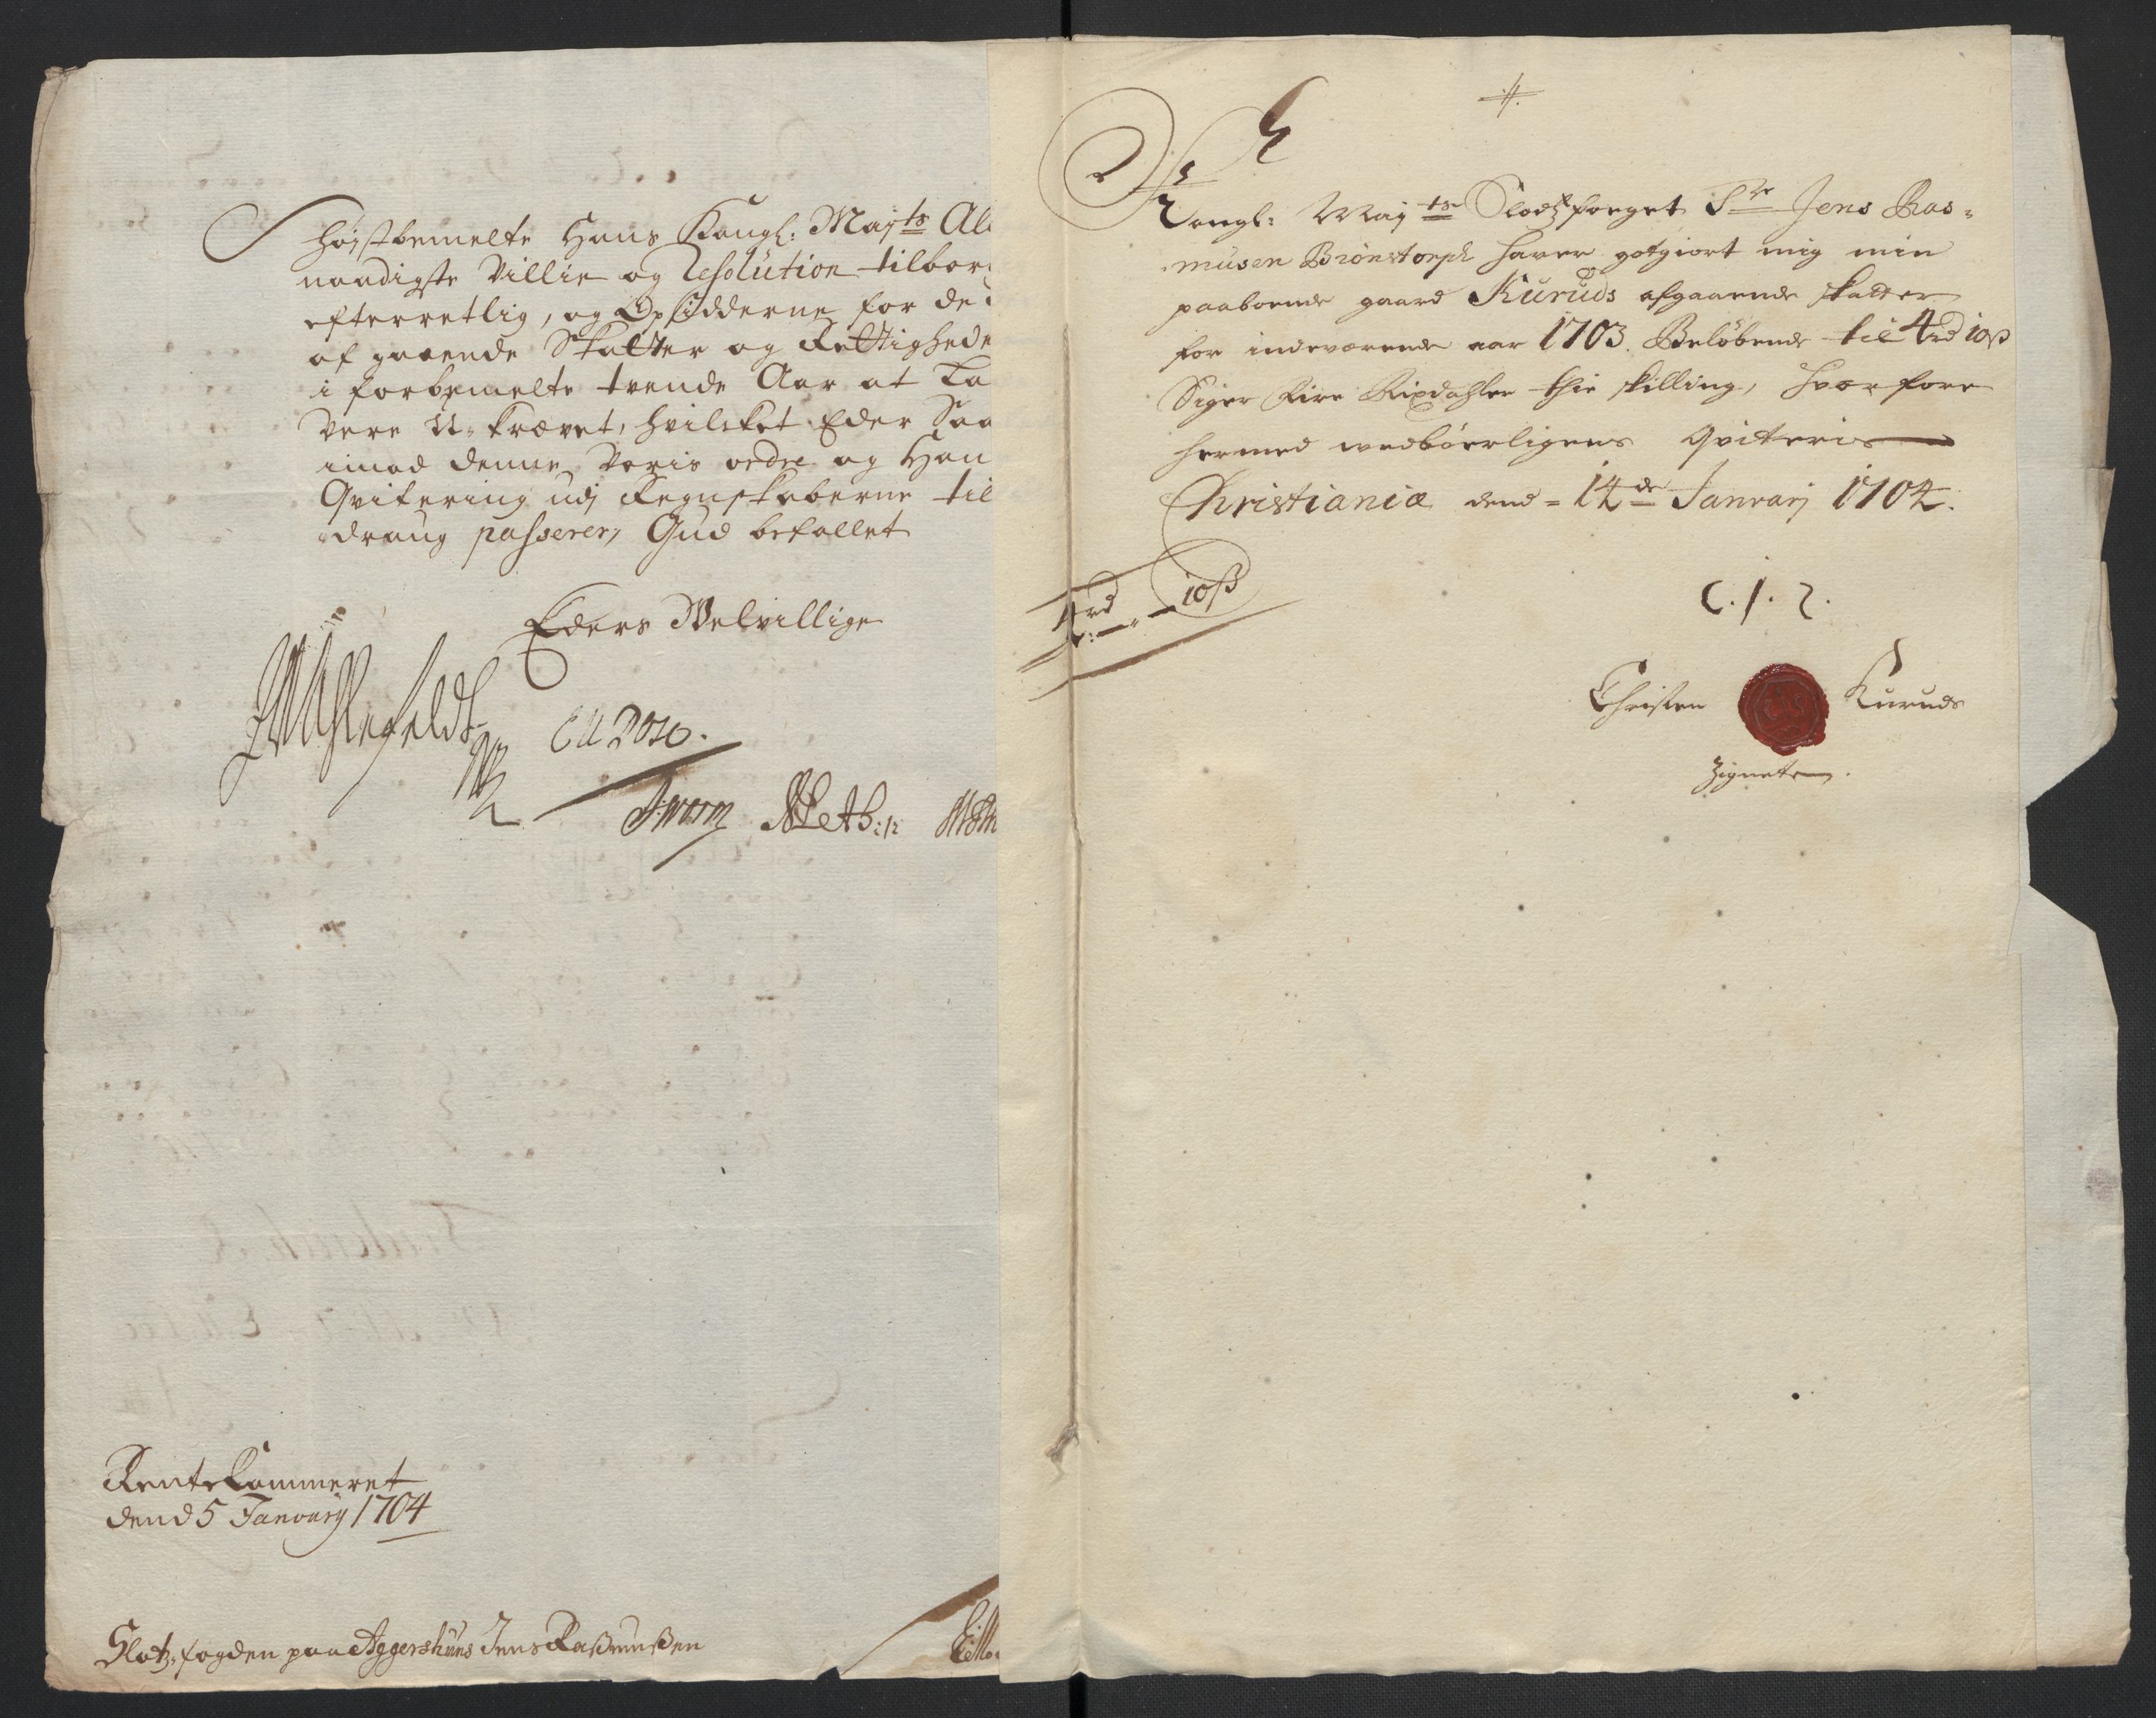 høystbemelte Hans Kongl: Maj:ts Al
naadigste Villie og Resolution tilbør
efterretlig, og Opsidderne for de
af gaaende Skatter og Rettighede
i forbemelte tvende Aar at
Være U-krævet, hvilcket Eder Saa
imod denne Voris ordre og Han
Qvitering udj Regnskaberne til
draug passerer, Gud befallet
Eders Velvillige
Rentekammeret
dend 5 Januarij 1704
Slotz-fogden paa Aggershuus Jens Rasmussen
./.
Kongl: Maj:ts Slodtzfoeget Sr Jens Ras-
musen Brönstorph hafver gotgiort mig min
paaboende gaard Kuruds afgaaende skatter
for indeværende aar 1703. Beløbende til 4 rd 10 ß
Siger Fire Rixdahler thie skilling, hvorfore
hermed wedbörligens qviteris
Christiania dend = 14de Janvarj 1704.
4 rd – 10 ß
C. J. S.
Christen Kuruds
Zignete.